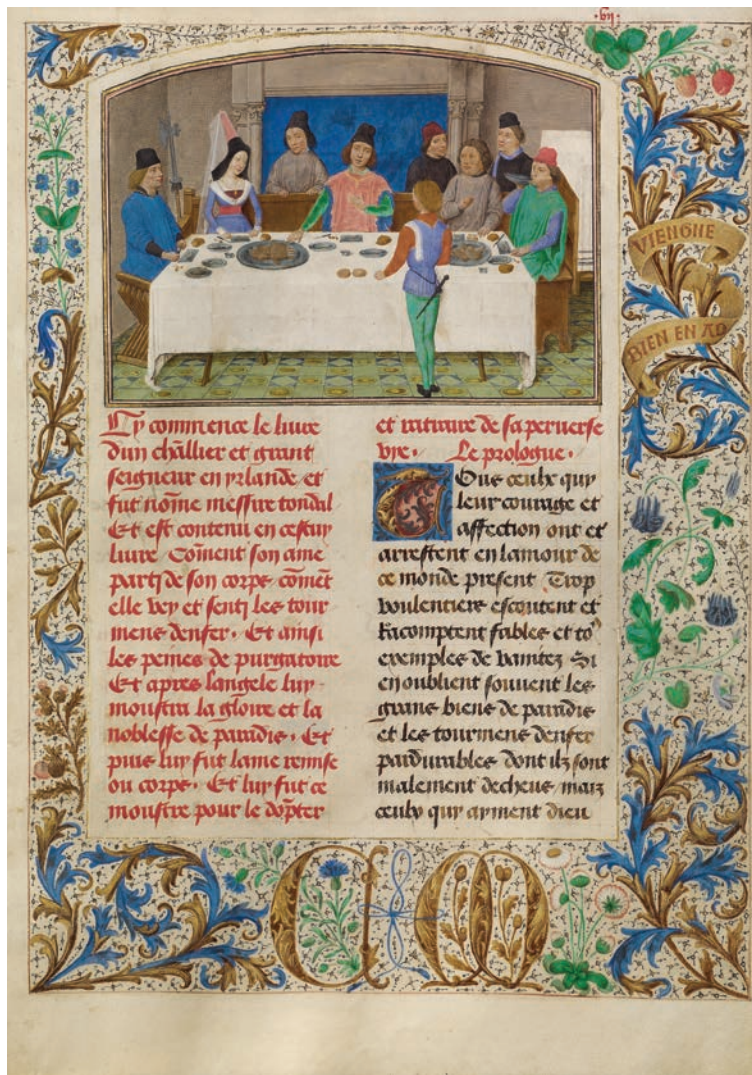 ·vii·
VIENGNE
BIEN EN AD
Cy commence le liure
dun chl̃lier et grant
seigneur en yrlande et
fut nõme messire tondal
Et est contenu en cestuy
liure Cõment son ame
parti de son corps cõmẽt
elle vey et senti les tour
mens denfer. Et ainsi
les peines de purgatoire
Et apres langele luy
moustra la gloire et la
noblesse de paradis. Et
puis luy fut lame remise
ou corps. Et luy fut ce
moustre pour le dõpter
et retraire de sa peruerse
vye. Le prologue.
Tous ceulx quy
leur courage et
affection ont et
arrestent en lamour de
ce monde present Trop
voulentiers escoutent et
Racomptent fables et to9
exemples de vanitez Si
en oublient souuent les
grans biens de paradis
et les tourmens denfer
pardurables dont ilz sont
malement decheus maiz
ceulx quy ayment dieu
C M